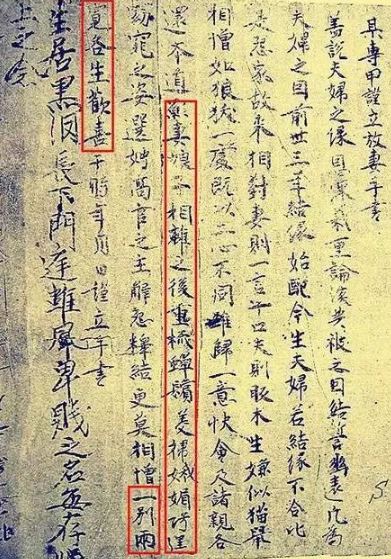 某專甲謹立放妻手書
蓋說夫婦之緣恩深義重論談共被之因結誓幽遠凡為
夫婦之因前世三年結緣始配今生夫婦若結緣不合比
是怨家故來相對妻則一言十口夫則販木生嫌似猫鼠
相憎如狼犺一處既以二心不同難歸一意快會及諸親各
還本道願妻娘子相離之後重梳蟬鬢美掃娥媚巧逞
窈窕之姿選娉高官之主解怨釋結更莫相憎一別兩
寬各生歡喜于時年月日謹立手書
生居黑長下門庭雖卑賤之名
上之念